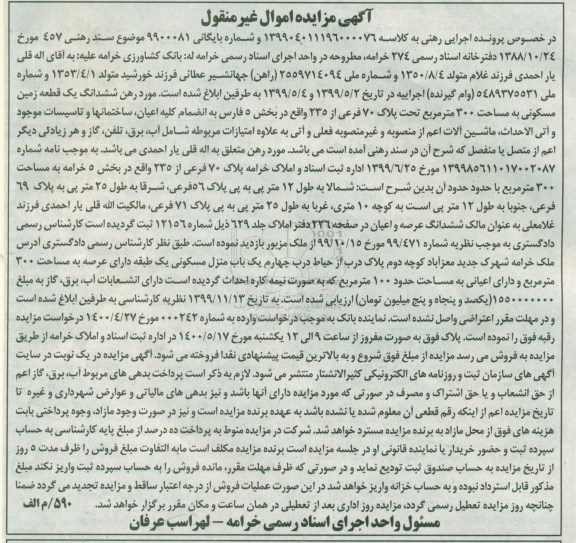 آگهی مزایده اموال غیر منقول
در خصوص پرونده اجرایی رهنی به کلاسه ۱۳۹۹۰۴۰۱۱۱۹۶۰۰۰۰۷۶ و شماره بایگانی ۹۹۰۰۰۸۱ موضوع سند رهنی ۴۵۷ مورخ
۱۳۸۸/۱۰/۲۴ دفترخانه اسناد رسمی ۲۷۴ خرامه، مطروحه در واحد اجرای اسناد رسمی خرامه له: بانک کشاورزی خرامه علیه: به آقای اله قلی
یار احمدی فرزند غلام متولد ۱۳۵۰/۸/۴ و شماره ملی ۲۵۵۹۷۱۴۰۹۴ (راهن) جهانشیر عطائی فرزند خورشید متولد ۱۳۵۳/۴/۱ و شماره
ملی ۵۴۸۹۳۷۵۵۳۱ (وام گیرنده) اجراییه در تاریخ ۱۳۹۹/۵/۲ و ۱۳۹۹/۵/۴ به طرفین ابلاغ شده است. مورد رهن ششدانگ یک قطعه زمین
مسکونی به مساحت ۳۰۰ مترمربع تحت پلاک ۷۰ فرعی از ۲۳۵ واقع در بخش ۵ فارس به انضمام کلیه اعیان، ساختمانها و تاسیسات موجود
و آتی الاحداث، ماشین آلات اعم از منصوبه و غیرمنصوبه فعلی و آتی به علاوه امتیازات مربوطه شامل آب، برق، تلفن، گاز و هر زیادتی دیگر
اعم از متصل یا منفصل که شرح آن در سند رهنی آمده است می باشد. مورد رهن متعلق به اله قلی یار احمدی می باشد. به موجب نامه شماره
۱۳۹۹۸۵۶۱۱۰۱۷۰۰۲۰۸۷ مورخ ۱۳۹۹/۶/۲۵ اداره ثبت اسناد و املاک خرامه پلاک ۷۰ فرعی از ۲۳۵ واقع در بخش ۵ خرامه به مساحت
۳۰۰ مترمربع با حدود حدود آن بدین شرح است: شمالا به طول ۱۲ متر پی به پی پلاک ۵۶فرعی، شرقا به طول ۲۵ متر پی به پی پلاک ۶۹
فرعی، جنوبا به طول ۱۲ متر پی است به کوچه ۱۰ متری، غربا به طول ۲۵ متر پی به پی پلاک ۷۱ فرعی، مالکیت الله قلی یار احمدی فرزند
غلامعلی به عنوان مالک ششدانگ عرصه و اعیان در صفحه ۲۳۶ دفتر املاک جلد ۶۲۹ ذیل شماره ۱۲۱۵۶ ثبت گردیده است کارشناس رسمی
دادگستری به موجب نظریه شماره ۹۹/۴۷۱ مورخ ۹۹/۱۰/۱۵ از ملک مزبور بازدید نموده است. طبق نظر کارشناس رسمی دادگستری آدرس
ملک خرامه شهرک جدید معزآباد کوچه دوم پلاک درب از حیاط درب چهارم یک باب منزل مسکونی یک طبقه دارای عرصه به مساحت ۳۰۰
مترمربع و دارای اعیانی به مساحت حدود ۱۰۰ مترمربع که به صورت نیمه کاره احداث گردیده است دارای انشعابات آب، برق، گاز به مبلغ
۱۵۵۰۰۰۰۰۰۰(یکصد و پنجاه و پنج میلیون تومان) ارزیابی شده است. به تاریخ ۱۳۹۹/۱۱/۱۳ نظریه کارشناسی به طرفین ابلاغ شده است
و در مهلت مقرر اعتراضی واصل نشده است. نماینده بانک به موجب درخواست وارده به شماره ۰۰۰۲۴۲ مورخ ۱۴۰۰/۴/۲۷ درخواست مزایده
رقبه فوق را نموده است. پلاک فوق به صورت مفروز از ساعت ۹ الی ۱۲ یکشنبه مورخ ۱۴۰۰/۵/۱۷ در اداره ثبت اسناد و املاک خرامه از طریق
مزایده به فروش می رسد مزایده از مبلغ فوق شروع و به بالاترین قیمت پیشنهادی نقدا فروخته می شود. آگهی مزایده در یک نوبت در سایت
آگهی های سازمان ثبت و روزنامه های الکترونیکی کثیرالانتشار منتشر می شود. لازم به ذکر است پرداخت بدهی های مربوط آب، برق، گاز اعم
از حق انشعاب و یا حق اشتراک و مصرف در صورتی که مورد مزایده دارای آنها باشد و نیز بدهی های مالیاتی و عوارض شهرداری و غیره تا
تاریخ مزایده اعم از اینکه رقم قطعی آن معلوم شده یا نشده باشد به عهده برنده مزایده است و نیز در صورت وجود مازاد، وجوه پرداختی بابت
هزینه های فوق از محل مازاد به برنده مزایده مسترد خواهد شد. شرکت در مزایده منوط به پرداخت ده درصد از مبلغ پایه کارشناسی به حساب
سپرده ثبت و حضور خریدار یا نماینده قانونی او در جلسه مزایده است برنده مزایده مکلف است مابه التفاوت مبلغ فروش را ظرف مدت ۵ روز
از تاریخ مزایده به حساب صندوق ثبت تودیع نماید و در صورتی که ظرف مهلت مقرر، مانده فروش را به حساب سپرده ثبت واریز نکند مبلغ
مذکور قابل استرداد نبوده و به حساب خزانه واریز خواهد شد در این صورت عملیات فروش از درجه اعتبار ساقط و مزایده تجدید می گردد ضمنا
چنانچه روز مزایده تعطیل رسمی گردد، مزایده روز اداری بعد از تعطیلی در همان ساعت و مکان مقرر برگزار خواهد شد. ۵۹۰/م الف
مسئول واحد اجرای اسناد رسمی خرامه - لهراسب عرفان